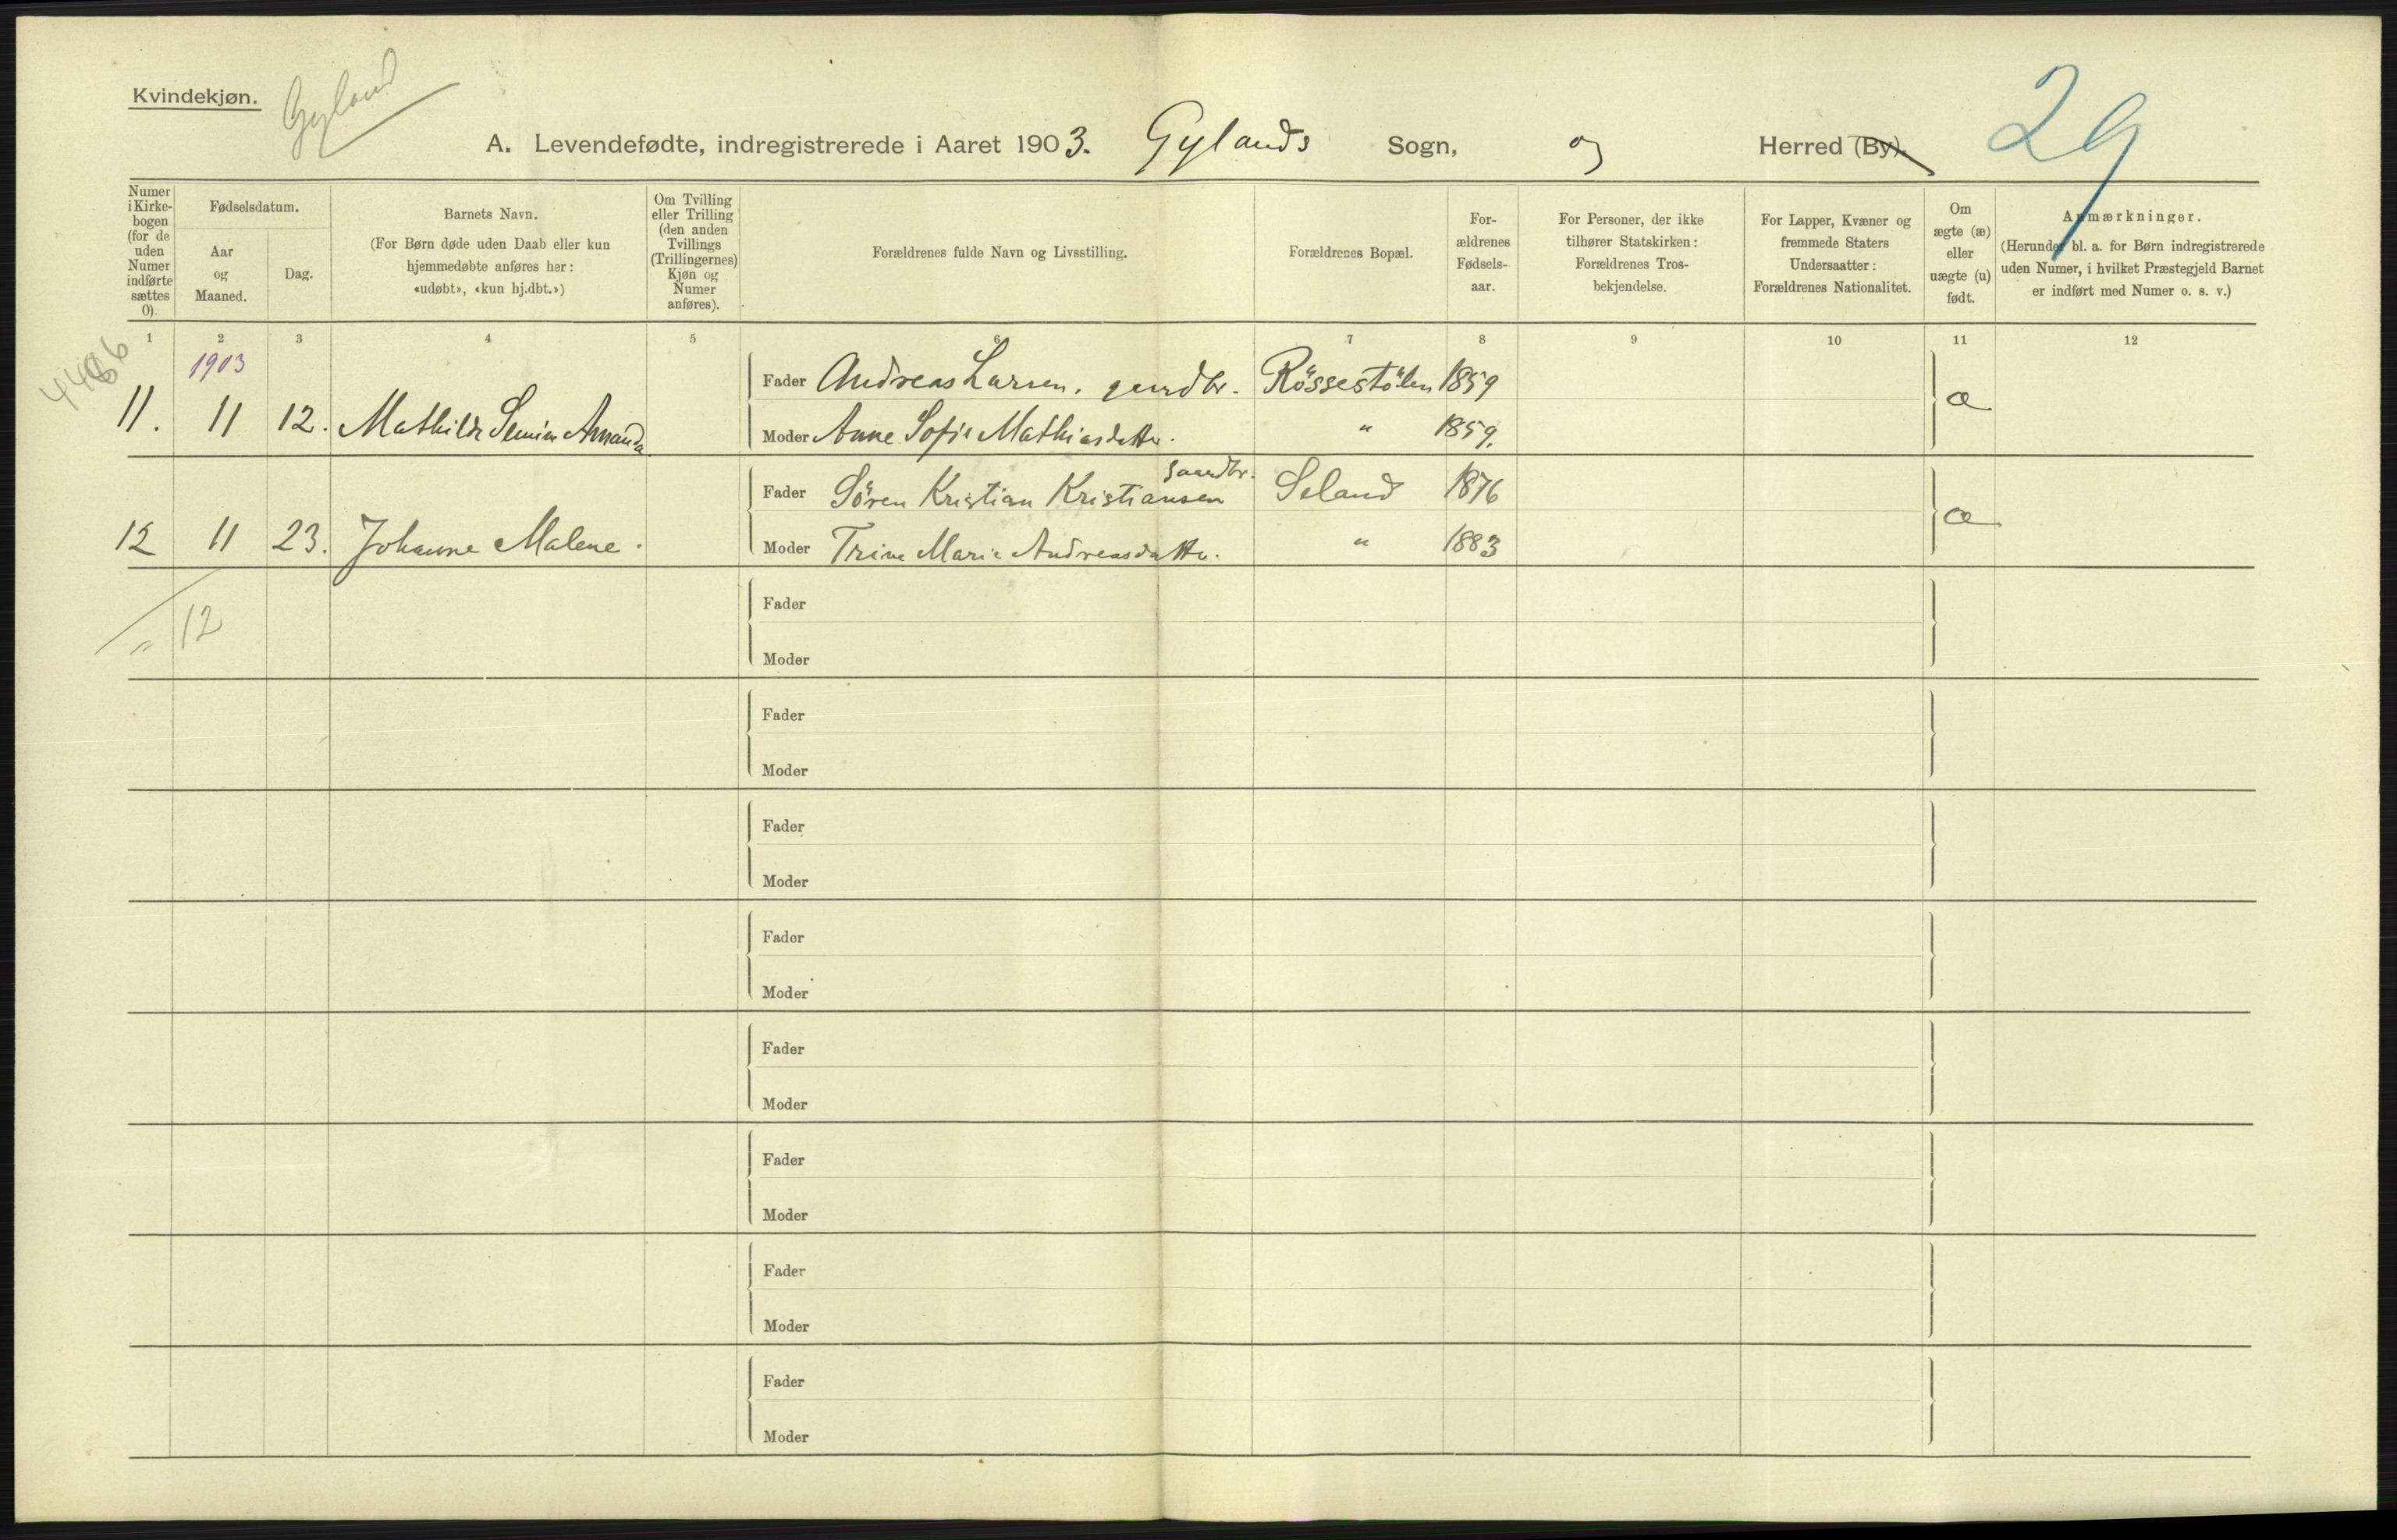 Kvindekjøn.
Gyland
A. Levendefødte, indregistrerede i Aaret 1903. Gylands Sogn, og Herred (By).
29
Numer i Kirke-bogen (for de uden Numer indførte sættes 0).
Fødselsdatum.
Aar og Maaned.
Dag.
Barnets Navn.
(For Børn døde uden Daab eller kun
hjemmedøbte anføres her:
«udøbt», «kun hj.dbt.»)
Om Tvilling
eller Trilling
(den anden
Tvillings
(Trillingernes)
Kjøn og
Numer
anføres).
Forældrenes fulde Navn og Livsstilling.
Forældrenes Bopæl.
For-
ældrenes
Fødsels-
aar.
For Personer, der ikke
tilhører Statskirken:
Forældrenes Tros-
bekjendelse.
For Lapper, Kvæner og
fremmede Staters
Undersaatter:
Forældrenes Nationalitet.
Om
ægte (æ)
eller
uægte (u)
født.
Anmærkninger.
(Herunder bl. a. for Børn indregistrerede
uden Numer, i hvilket Præstegjeld Barnet
er indført med Numer o. s. v.)
1 2 3 4 5 6 7 8 9 10 11 12
1903
Fader Andreas Larsen, gaardbr. Rössestölen 1859
11. 11 12. Mathilde Amanda æ
Moder Anne Sofie Mathiasdatter. " 1859.
gaardbr.
Fader Sören Kristian Kristiansen Seland 1876
12 11 23. Johanne Malene. æ
Moder Trine Marie Andreasdatter. " 1883
Fader
" 12
Moder
Fader
Moder
Fader
Moder
Fader
Moder
Fader
Moder
Fader
Moder
Fader
Moder
Fader
Moder